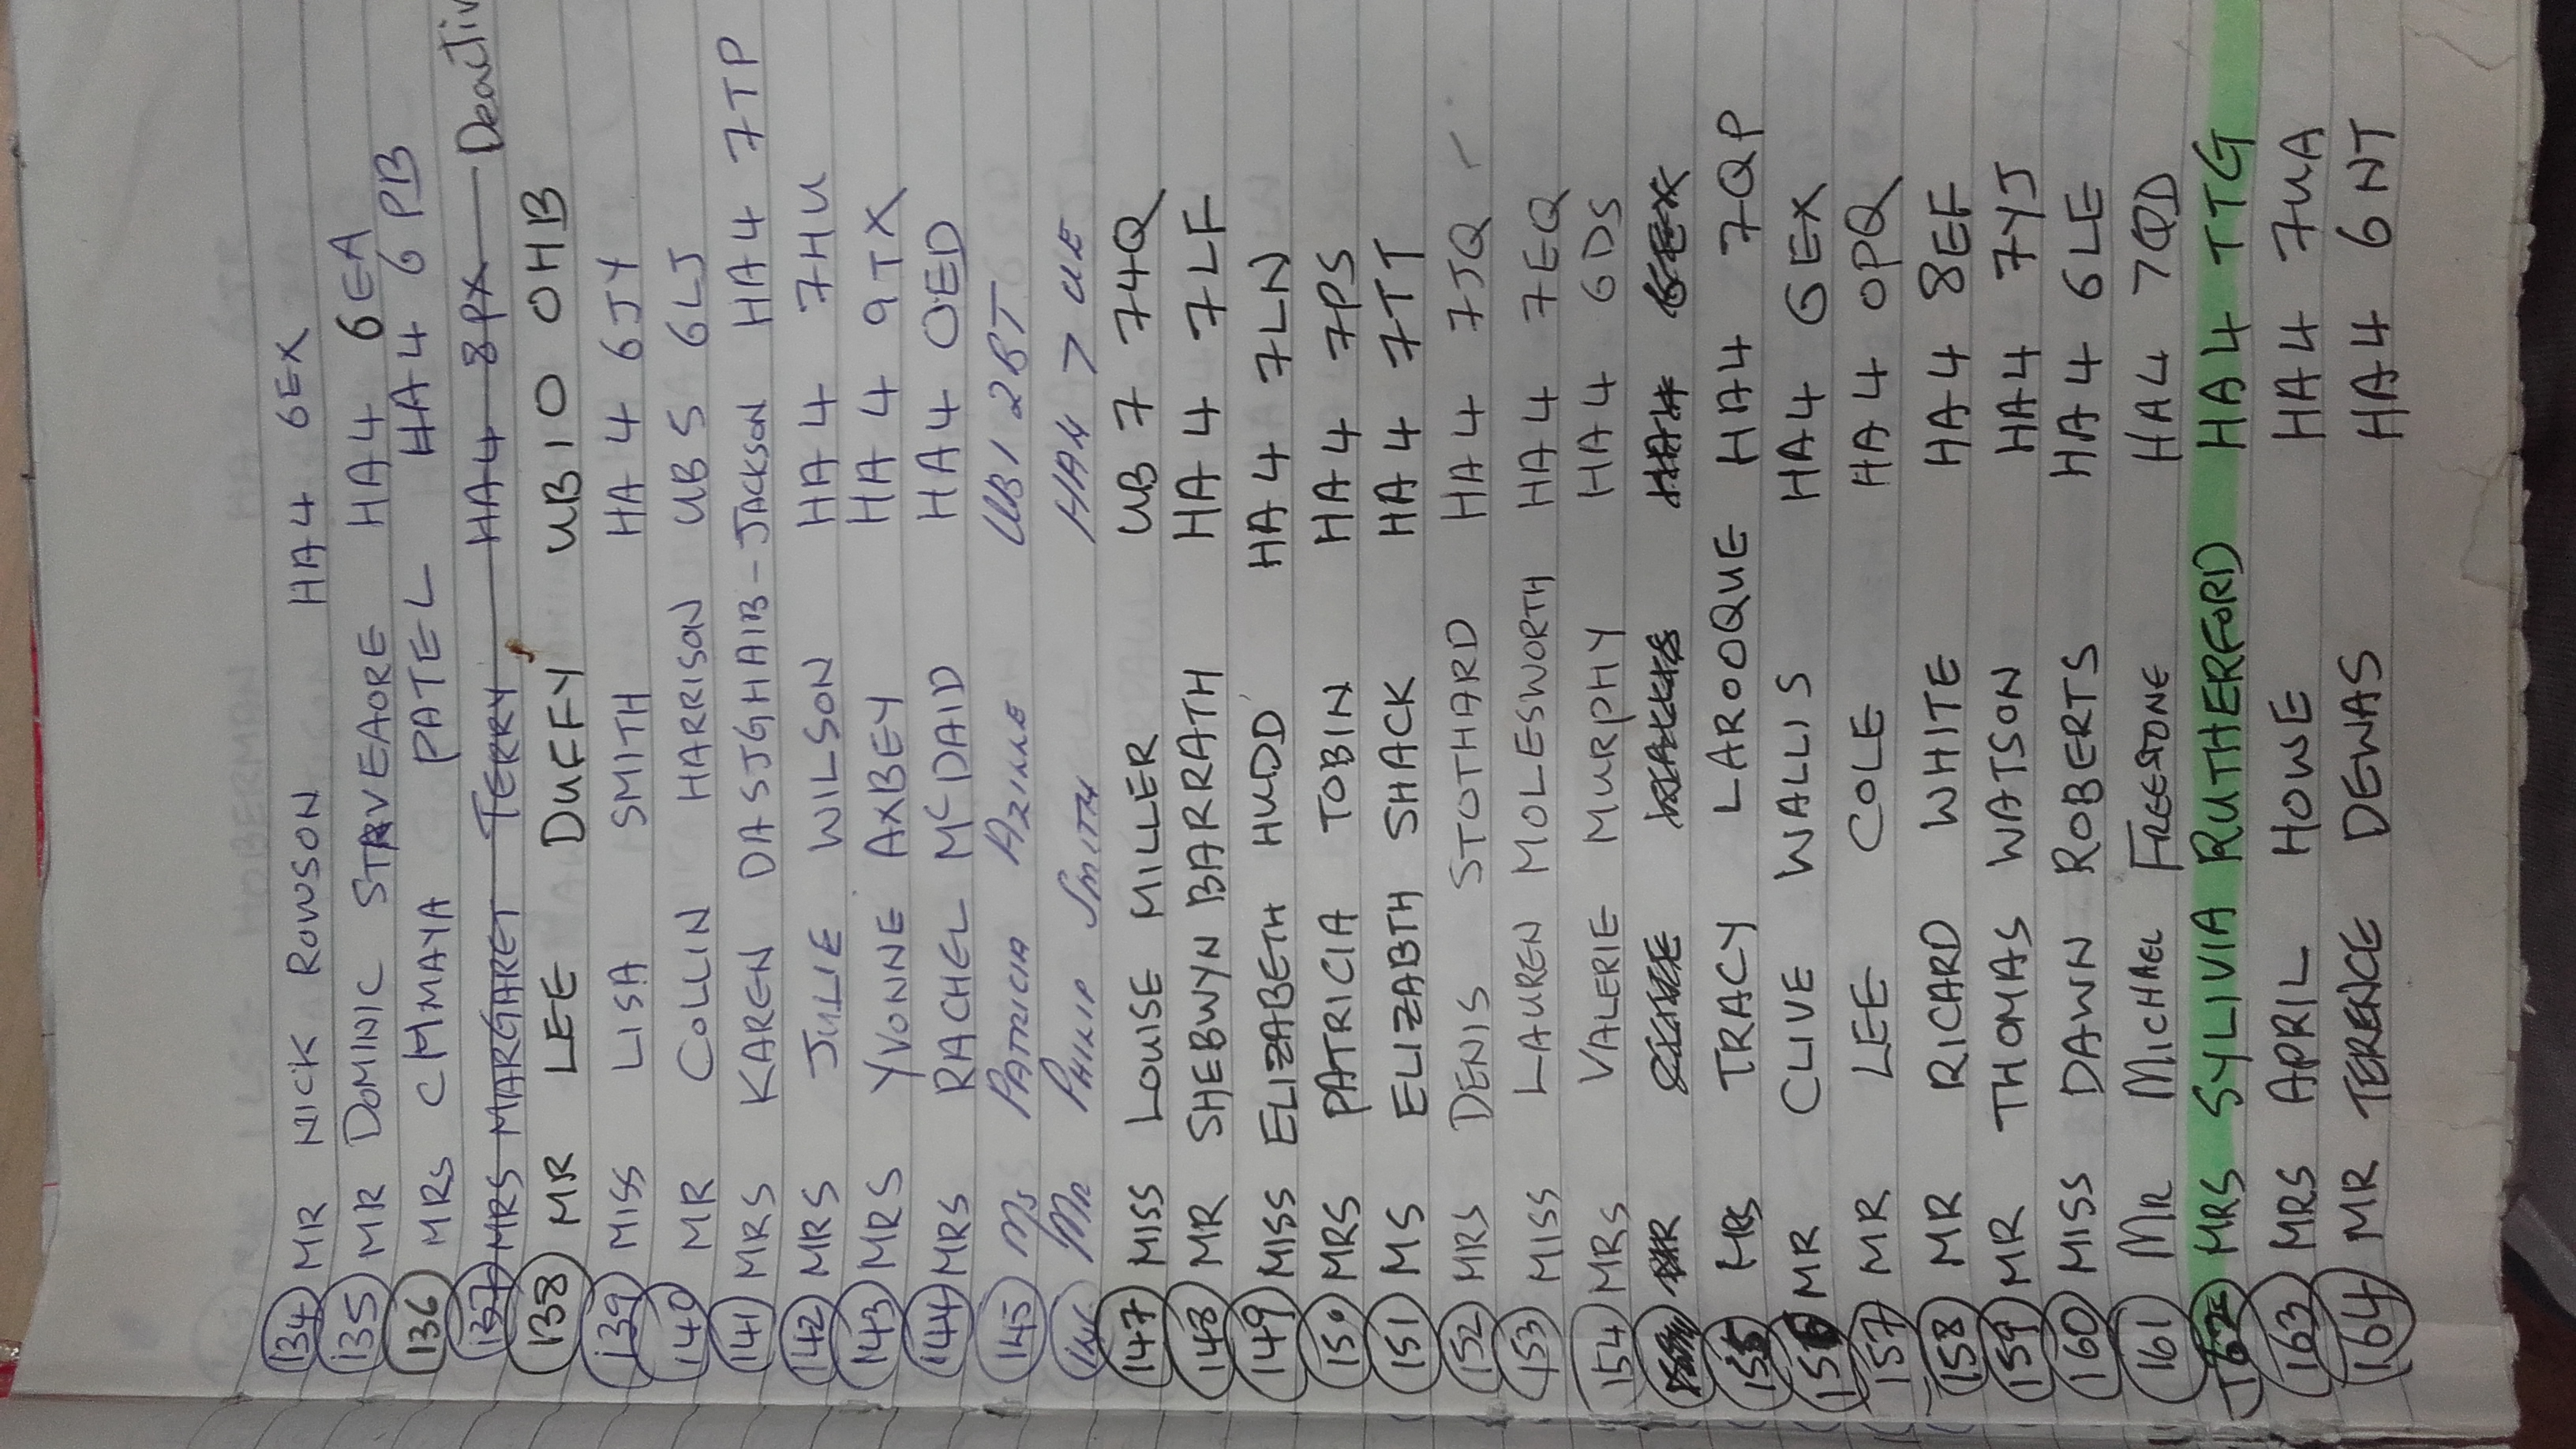 134 MR NICK ROWSON HA4 6EX
135 MR DOMINIC STAVEAORE HA4 6EA
136 MRS CHMAYA PATEL HA4 6PB
137 MRS MARGARET TERRY HA4 8PX Deactiv
138 MR LEE DUFFY UB10 OHB
139 MISS LISA SMITH HA4 6JY
140 MR COLLIN HARRISON UB5 6LJ
141 MRS KAREN DASJGHAIB-JACKSON HA4 7TP
142 MRS JULIE WILSON HA4 7HU
143 MRS YVONNE AXBEY HA4 9TX
144 MRS RACHEL McDAID HA4 OED
145 Ms PATRICIA AZILLE UB1 2BT
146 MR PHILIP SMITH HA4 7UE
147 MISS LOUISE MILLER UB7 74Q
148 MR SHEBWYN BARRATH HA4 7LF
149 MISS ELIZABETH HUDD HA4 7LN
150 MRS PATRICIA TOBIN HA4 7PS
151 MS ELIZABTH SHACK HA4 7TT
152 MRS DENIS STOTHARD HA4 7JQ
153 MISS LAUREN MOLESWORTH HA4 7EQ
154 MRS VALERIE MURPHY HA4 6DS
MR CLIVE WALLIS HA4 6EX
155 MRS TRACY LAROOQUE HA4 7QP
156 MR CLIVE WALLIS HA4 6EX
157 MR LEE COLE HA4 0PQ
158 MR RICARD WHITE HA4 8EF
159 MR THOMAS WATSON HA4 7YJ
160 MISS DAWN ROBERTS HA4 6LE
161 MR MICHAEL FREESTONE HA4 7QD
162 MRS SYLIVIA RUTHERFORD HA4 TTG
163 MRS APRIL HOWE HA4 7UA
164 MR TERENCE DEWAS HA4 6NT